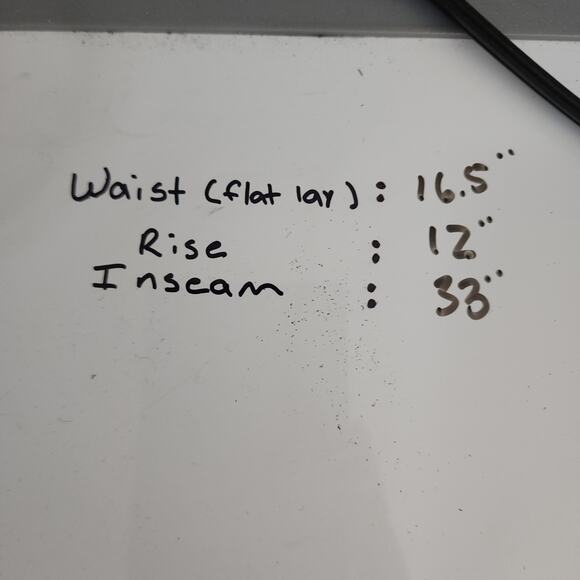 Waist (flat lay) : 16.5"
Rise : 12"
Inseam : 33"